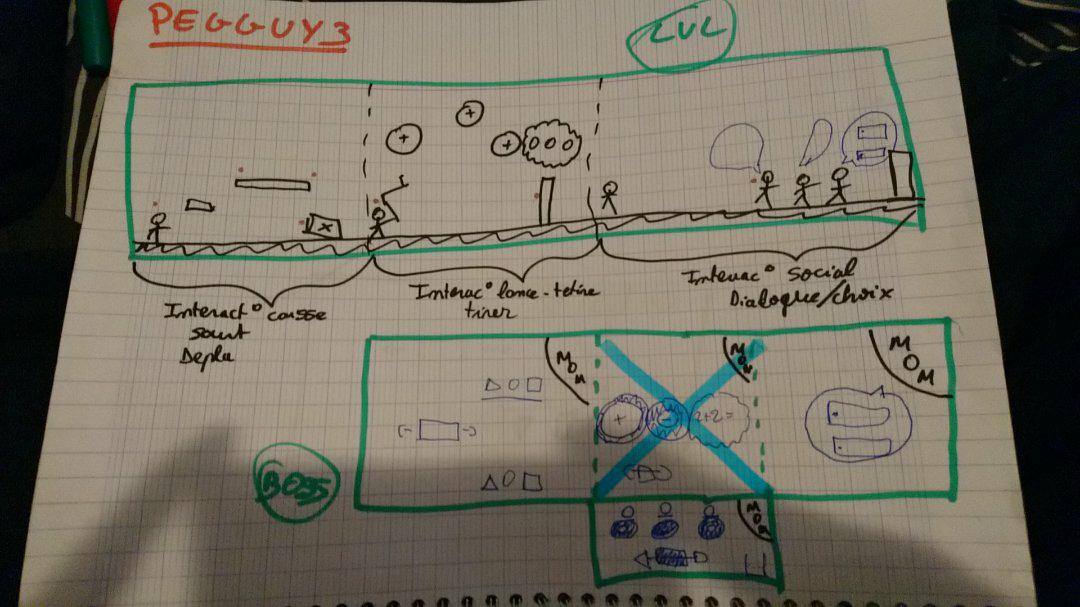 PEGGUY3
LVL
Interact° caisse
saut
Depla
Interac° lance-tetine
tirer
Interac° social
Dialogue/choix
MOM
MOM
MOM
2+2=
BOSS
MOM